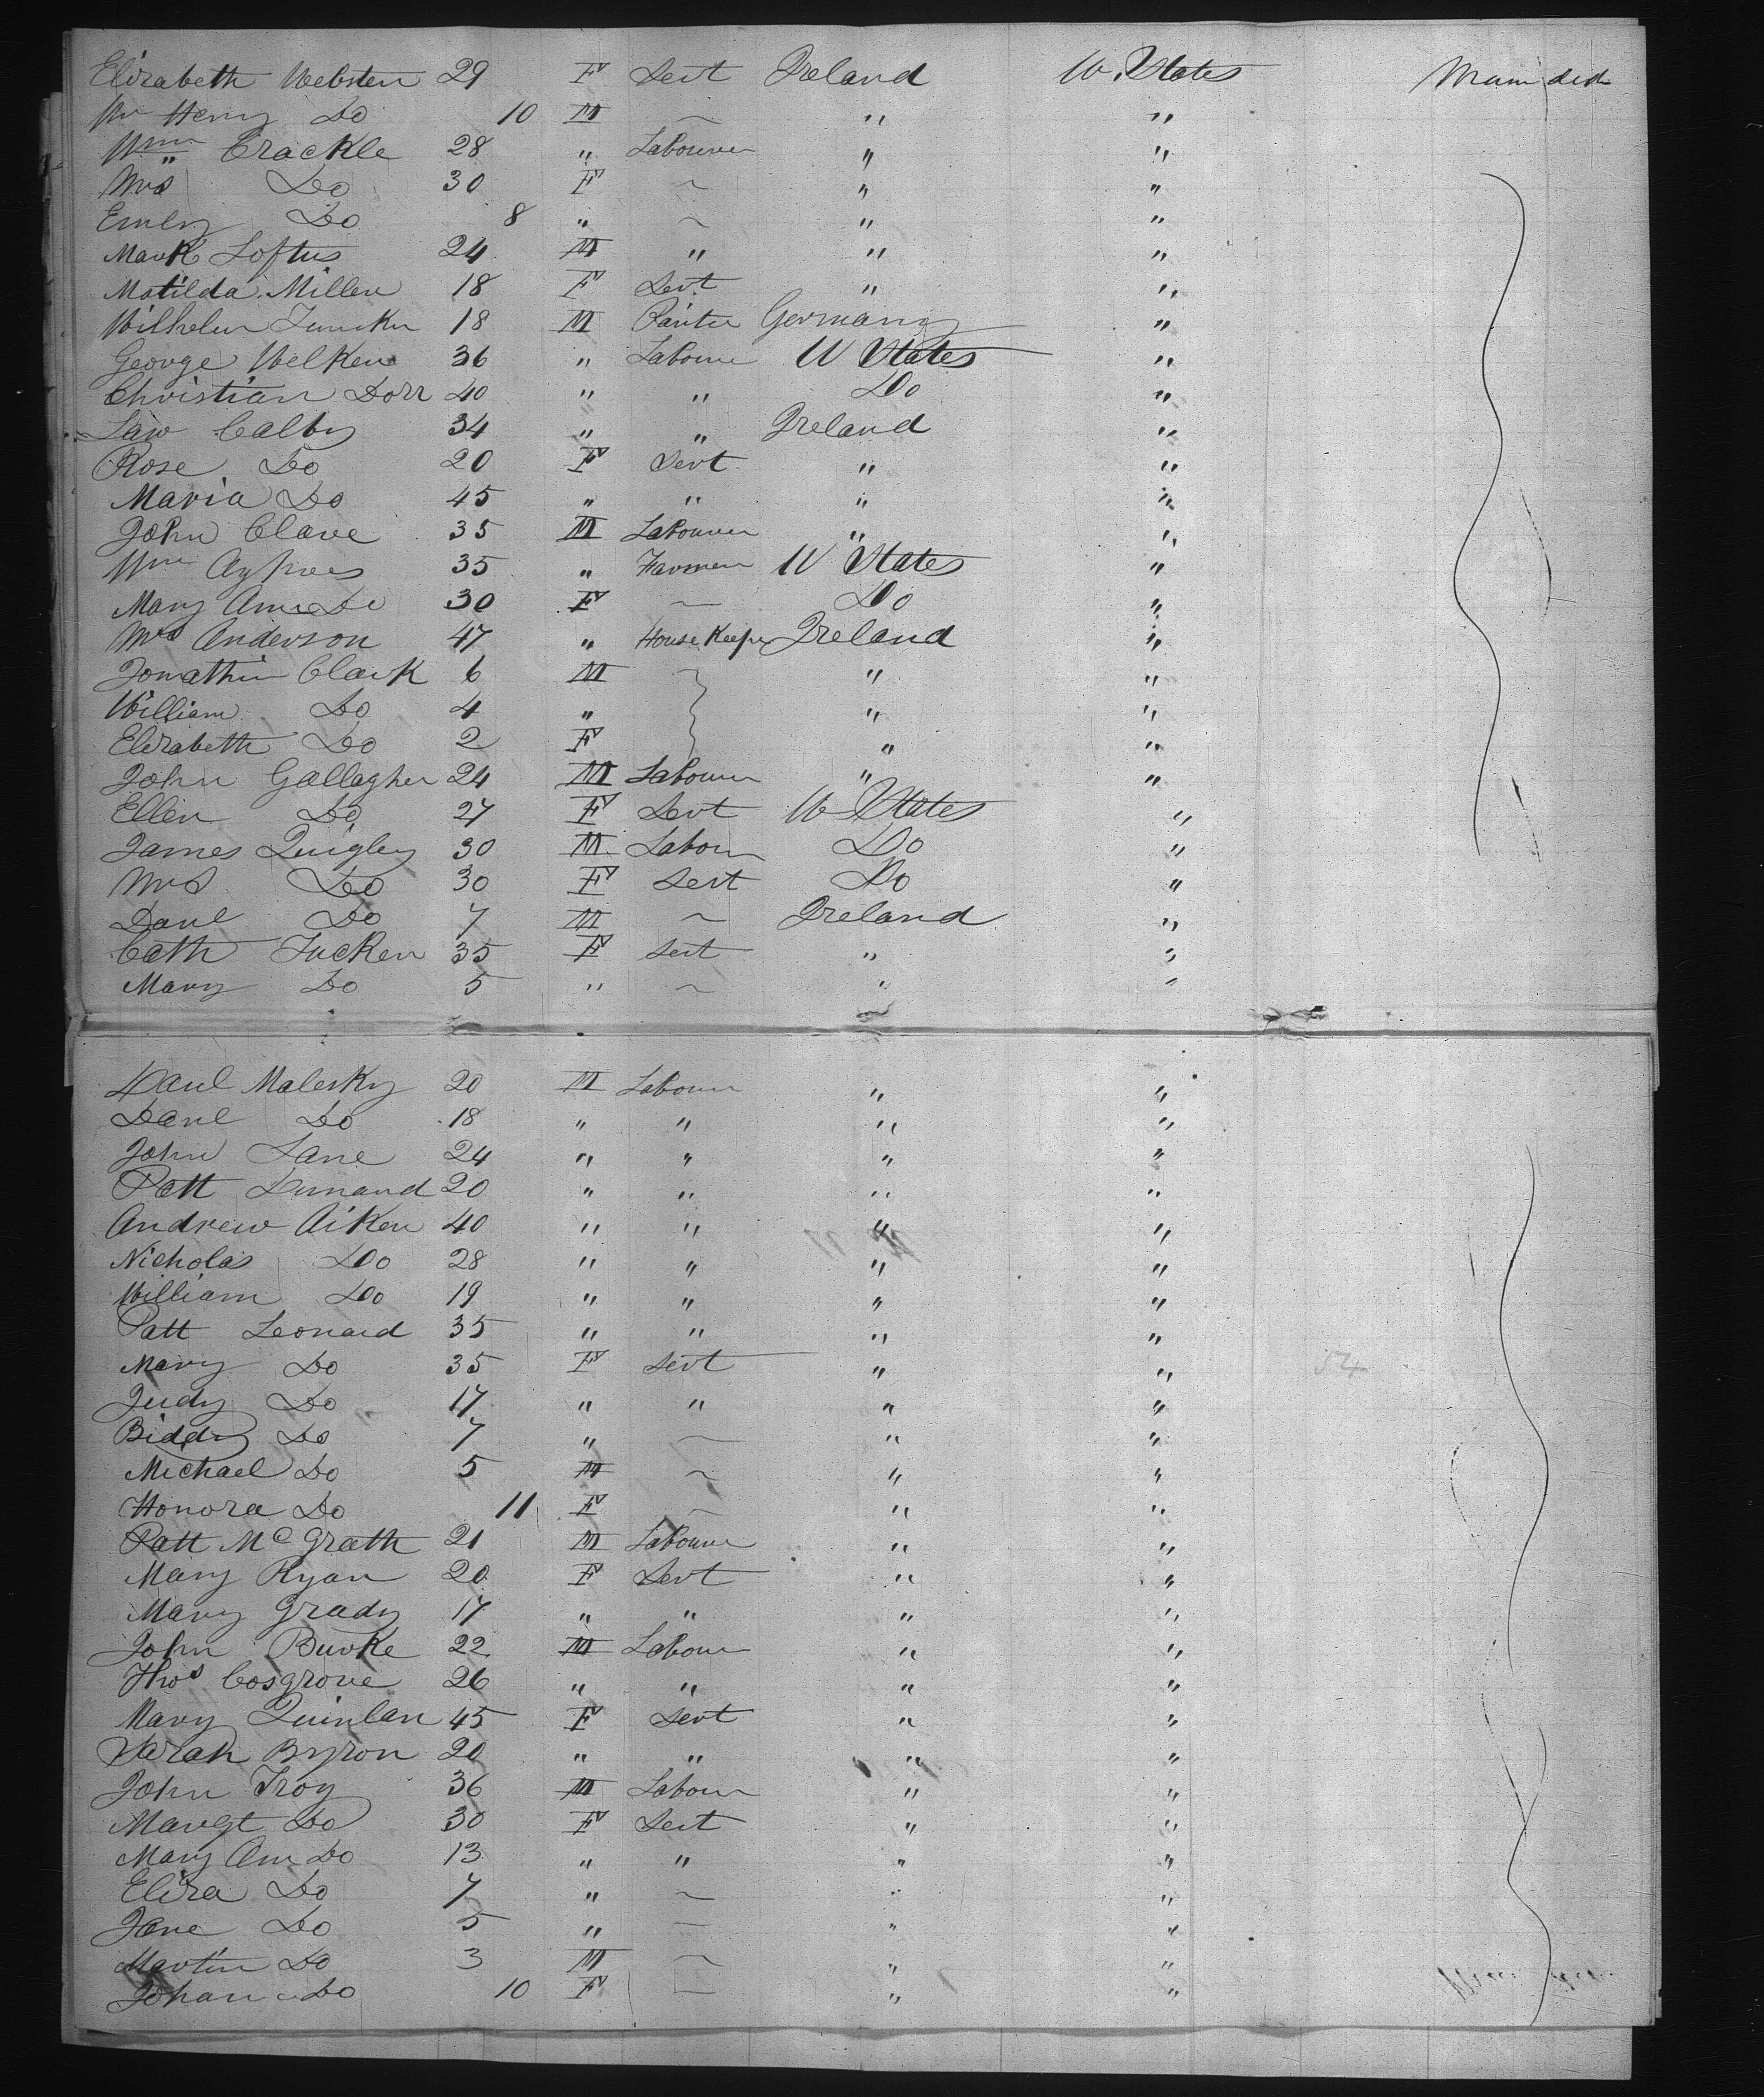 Elizabeth Webster 29 F Sert Ireland U. States Main deck
Wm Henry Do 10 M ~ " "
Wm Crackle 28 " Labourer " "
Mrs Do 30 F ~ " "
Emely Do 8 " ~ " "
Mark Loftus 24 M " " "
Matilda Miller 18 F Sevt " "
Wilhelm 18 M Germany "
George Welker 36 " Laboure U States "
Christian Dorr 40 " " Do "
Law Calby 34 " " Ireland "
Rose Do 20 F Servt " "
Maria Do 45 " " " "
John Clare 35 M Labourer " "
Wm 35 " Farmer U States "
Mary Ann Do 30 F ~ Do "
Mrs Anderson 47 " House Keeper Ireland "
Jonathin Clark 6 M ~ " "
William Do 4 " " "
Elizabeth Do 2 F " "
John Gallagher 24 M Labourer " "
Ellen Do 27 F Sevt U States "
James Quigley 30 M Labour Do "
Mrs Do 30 F Sert Do "
Danl Do 7 M ~ Ireland "
Cath Tucker 35 F Sert " "
Mary Do 5 " ~ " "
Malesky 20 M Labour " "
Danl Do 18 " " " "
John Lane 24 " " " "
Patt 20 " " " "
Andrew Aiken 40 " " " "
Nicholas Do 28 " " " "
William Do 19 " " " "
Patt Leonard 35 " " " "
Mary Do 35 F Sevt " "
Judy Do 17 " " " "
Biddy Do 7 " ~ " "
Michael Do 5 M ~ " "
Honora Do 11 F ~ " "
Patt McGrath 21 M Laboure " "
Mary Ryan 20 F Sevt " "
Mary Grady 17 " " " "
John Burke 22 M Labour " "
Thos Cosgrove 26 " " " "
Mary Quinlan 45 F Sevt " "
Sarah Byron 20 " " " "
John Troy 36 M Labour " "
Margt Do 30 F Sert " "
Mary Ann Do 13 " " " "
Eliza Do 7 " ~ " "
Jane Do 5 " ~ " "
Martin Do 3 M ~ " "
Johana Do 10 F ~ " "